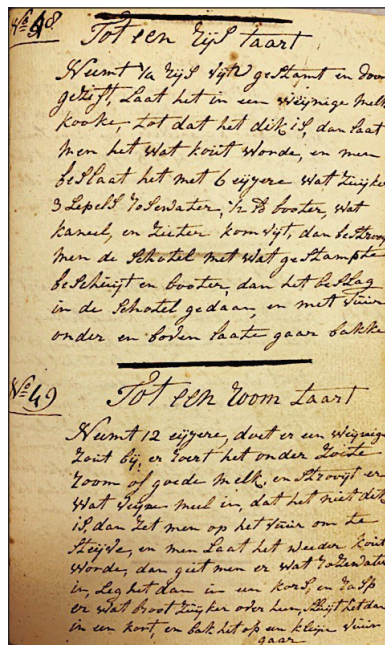 No 48
Tot een Rijs taart
Neemt 1/4 Rijs Fijn gestamt en door
gezift, Laat het in een weijnige melk
kooke, tot dat het dik is, dan laat
men het wat kout worde, en men
beslaat het met 6 eijyere wat Zuijker
3 Lepels Rosewater, 1/2 lb booter, wat
kaneel, en, dan bestrooy
men de Schotel met wat gestampte
beschuijt en booter, dan het beslag
in de Schotel gedaan, en met vuur
onder en boven laate gaar bakke
No 49
Tot een Room taart
Neemt 12 eijyere, doet er een weijnig
Zout bij, en roert het onder Zoete
room of goede melk, en strooyt er
wat Feijne meel in, dat het niet dik
is, dan Zet men op het vuur om te
Steijve, en men Laat het weeder kout
worde, dan giet men er wat rosewater
in, Leg het dan in een korst, en rasp
er wat broot Zuijker over hen, Sluijt het dan
in een korst, en bak het op een kleijn vuur
gaar